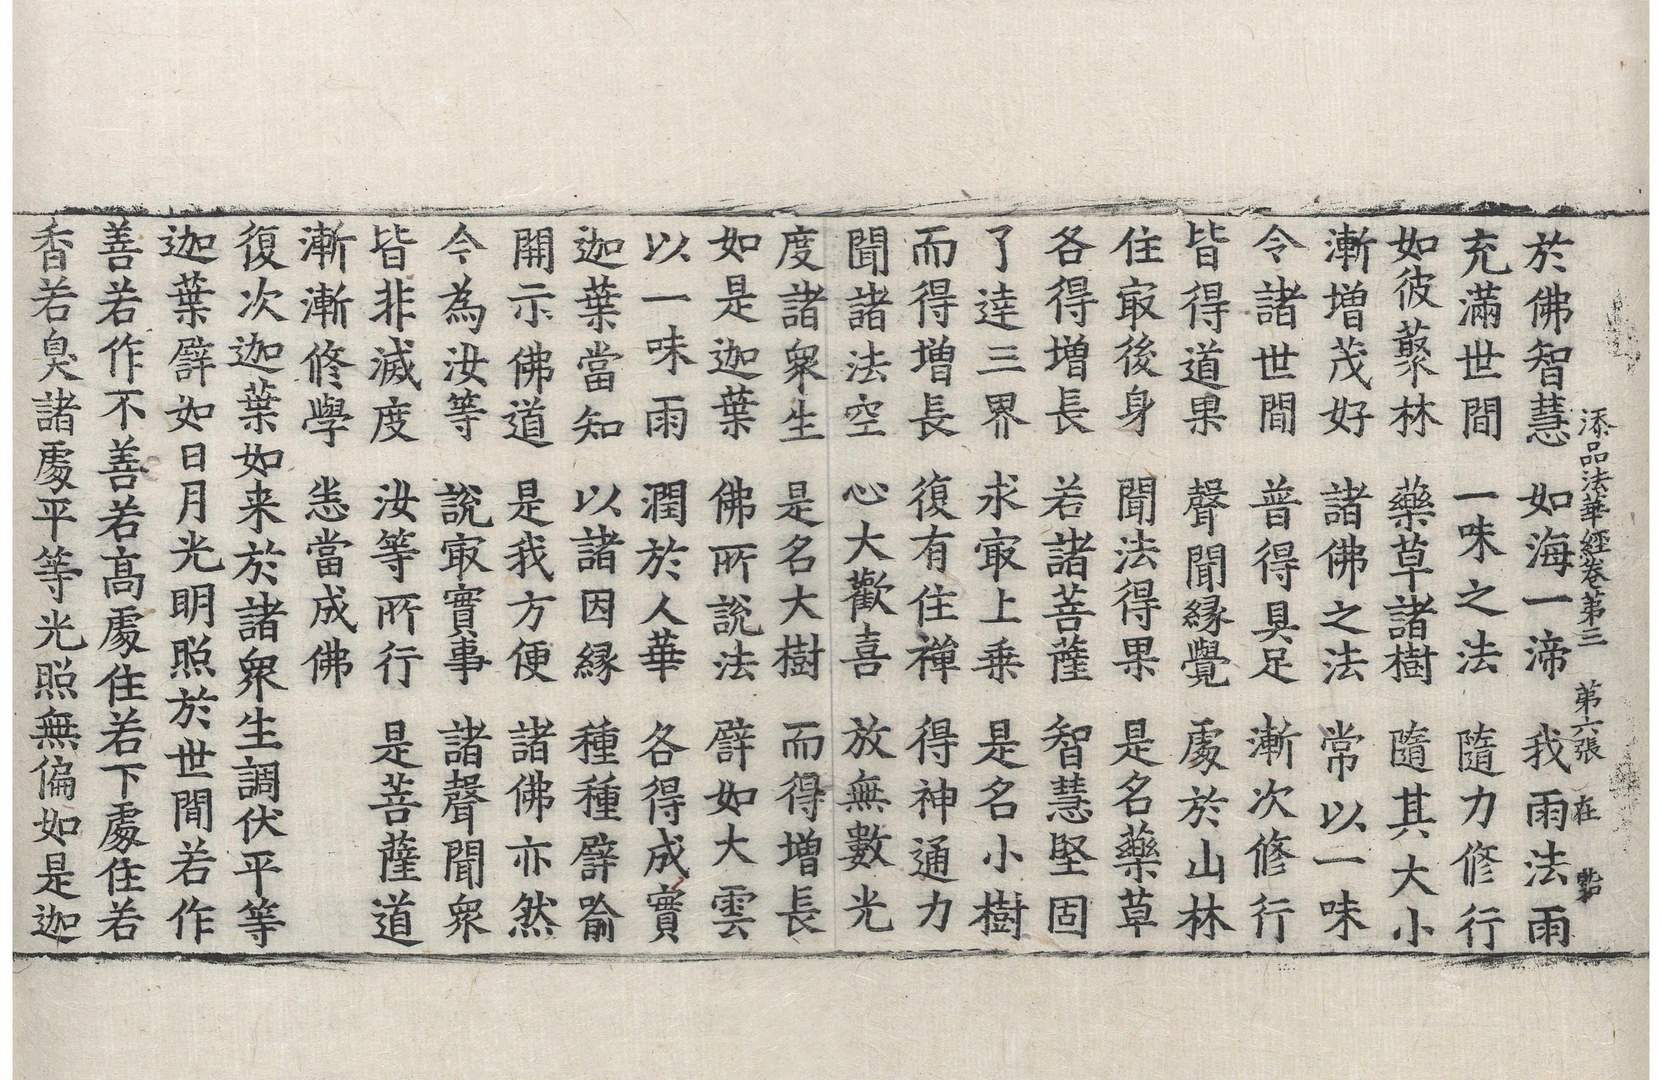 添品法華經卷第三　第六張　在
於佛智慧　如海一渧　我雨法雨
充滿世間　一味之法　隨力修行
如彼藂林　藥草諸樹　隨其大小
漸增茂好　諸佛之法　常以一味
令諸世間　普得具足　漸次修行
皆得道果　聲聞緣覺　處於山林
住㝡後身　聞法得果　是名藥草
各得增長　若諸菩薩　智慧堅固
了達三界　求㝡上乘　是名小樹
而得增長　復有住禪　得神通力
聞諸法空　心大歡喜　放無數光
度諸衆生　是名大樹　而得增長
如是迦葉　佛所說法　譬如大雲
以一味雨　潤於人華　各得成實
迦葉當知　以諸因緣　種種譬喻
開示佛道　是我方便　諸佛亦然
今為汝等　說㝡實事　諸聲聞衆
皆非滅度　汝等所行　是菩薩道
漸漸修學　悉當成佛
復次迦葉如来於諸衆生調伏平等
迦葉譬如日月光明照於世間若作
善若作不善若高處住若下處住若
香若臭諸處平等光照無偏如是迦